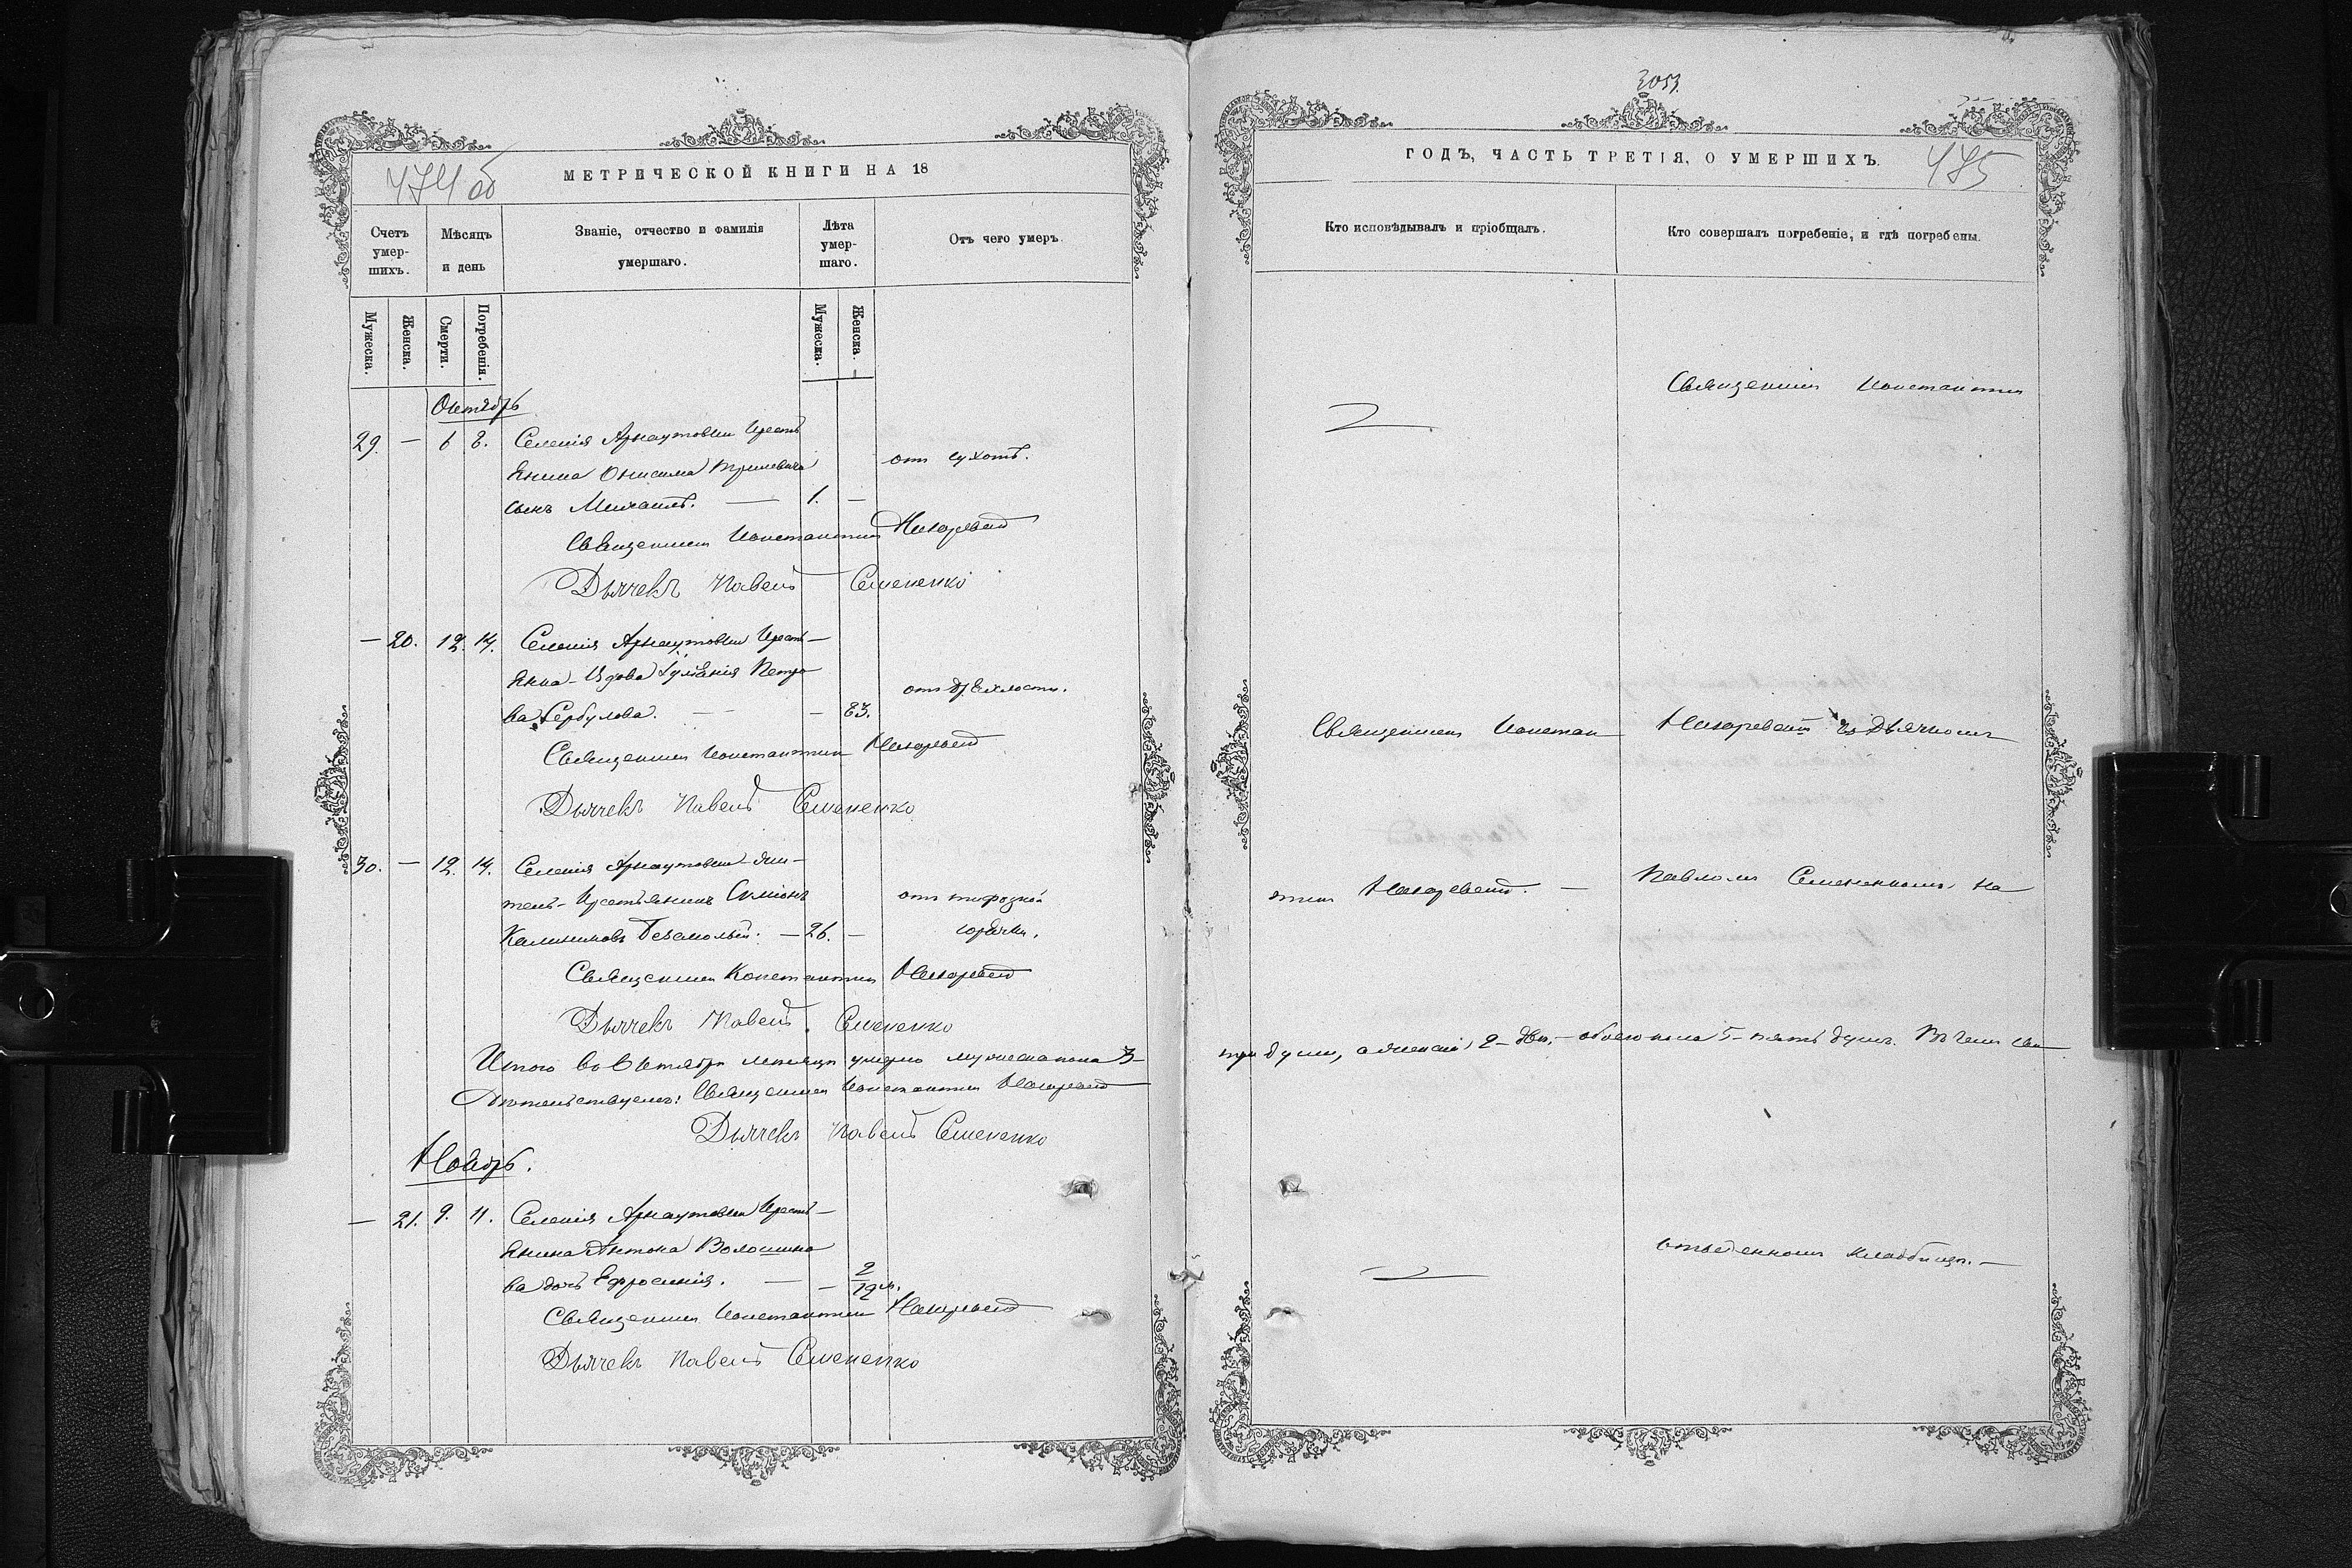 474 об
МЕТРИЧЕСКОЙ КНИГИ НА 18
Счетъ умер-шихъ.
Мѣсяцъ и день
Званіе, отчество и фамилія умершаго.
Лѣта умер-шаго.
Отъ чего умеръ.
Мужеска.
Женска.
Смерти.
Погребенія.
Мужеска.
Женска.
Октябрь
29. — 6 8. Селенія Арнаутовки Крестъ
янина Онисима
сынъ Михаилъ. — 1. —
отъ сухотъ.
Священникъ Константинъ
Дьячекъ Павелъ Семененко
— 20. 12. 14. Селенія Арнаутовки Крестъ—
янка-Вдова Петро
ва Сербулова. — — 83.
отъ дряхлости.
Священникъ Константинъ
Дьячекъ Павелъ Семененко
30. — 12. 14. Селенія Арнаутовки-жи—
тель-Крестьянинъ Симіонъ
Калиниковъ — 26. —
отъ тифозной
горячки.
Священникъ Константинъ
Дьячекъ Павелъ Семененко
Итого во Октябрѣ месяцѣ умерло мужеска пола 3—
Священникъ Константинъ
Дьячекъ Павелъ Семененко
Ноябрь.
— 21. 9. 11. Селенія Арнаутовки Крестъ—
янина Антона Волошино
ва дочь Ефросинія. — — 2/12 м.
Священникъ Константинъ
Дьячекъ Павелъ Семененко
3053
ГОДЪ, ЧАСТЬ ТРЕТІЯ, О УМЕРШИХЪ.
475
Кто исповѣдывалъ и пріобщалъ.
Кто совершалъ погребеніе, и гдѣ погребены.
Священникъ Константинъ
Священникъ Констан
съ Дьячкомъ
тинъ
Павломъ Семененкомъ на
три души, а женска 2—двѣ,— обоего пола 5—пять душъ. Въ чемъ сви
отведенномъ кладбищѣ.—